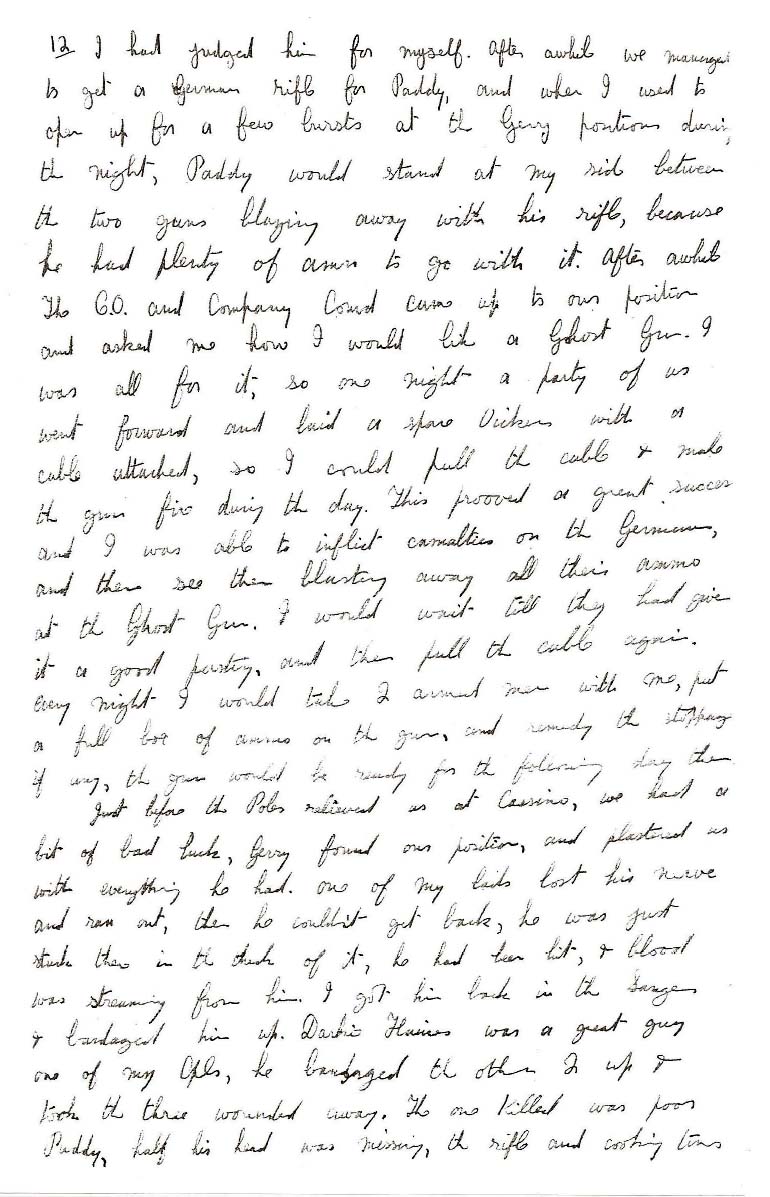 12 I had judged him for myself. After awhile we managed
to get a German rifle for Paddy, and when I used to
open up for a few bursts at the Gerry positions during
the night, Paddy would stand at my side between
the two guns blazing away with his rifle, because
he had plenty of ammo to go with it. After awhile
The C.O. and Company Comd came up to our position
and asked me how I would like a Ghost Gun. I
was all for it, so one night a party of us
went forward and laid a spare Vickers with a
cable attached, so I could pull the cable & make
the gun fire during the day. This prooved a great success
and I was able to inflict casualties on the Germans,
and then see them blasting away all their ammo
at the Ghost Gun. I would wait till they had give
it a good pasting, and then pull the cable again.
every night I would take 2 armed men with me, put
a full box of ammo on the gun, and remedy the stoppage
if any, the gun would be ready for the following day then
Just before the Poles relieved us at Cassino, we had a
bit of bad luck, Gerry found our position, and plastered us
with everything he had. one of my lads lost his nerve
and ran out, then he couldn't get back, he was just
stuck there in the thick of it, he had been hit, & blood
was streaming from him. I got him back in the Sanger
& bandaged him up. Darkie Haines was a great guy
one of my Cpls, he bandaged the other 2 up &
took the three wounded away. The one Killed was poor
Paddy, half his head was missing, the rifle and cooking tins